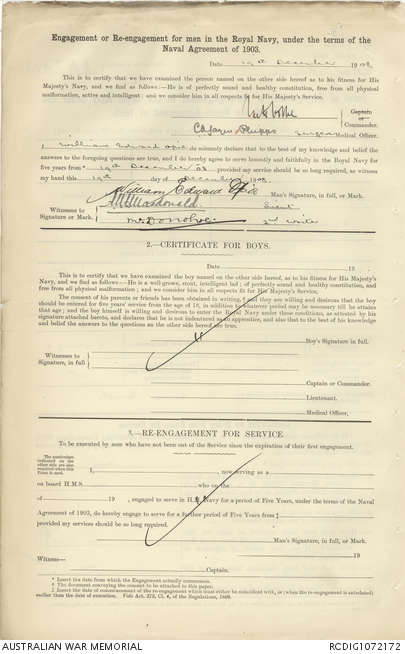 Engagement or Re-engagement for men in the Royal Navy, under the terms of the
Naval Agreement of 1903.
Date 19th December 1908
This is to certify that we have examined the person named on the other side hereof as to his fitness for His
Majesty's Navy, and we find as follows:—He is of perfectly sound and healthy constitution, free from all physical
malformation, active and intelligent; and we consider him in all respects fit for His Majesty's Service.
Captain or
Commander.
Surgeon Medical Officer.
I, William Edward Opie do solemnly declare that to the best of my knowledge and belief the
answers to the foregoing questions are true, and I do hereby agree to serve honestly and faithfully in the Royal Navy for
five years from* 19th December '08 provided my service should be so long required, as witness
my hand this 19th day of December 1908
William Edward Opie Man's Signature, in full, or Mark.
Witnesses to
Signature or Mark.
Macdonald. Lieut
McDonohoe 2nd writer
2.—CERTIFICATE FOR BOYS.
Date 19
This is to certify that we have examined the boy named on the other side hereof, as to his fitness for His Majesty's
Navy, and find as follows:—He is a well grown, stout, intelligent lad; of perfectly sound and healthy constitution, and
free from all physical malformation; and we consider him in all respects fit for His Majesty's Service.
The consent of his parents or friends has been obtained in writing,† and they are willing and desirous that the boy
should be entered for five years' service from the age of 18, in addition to whatever period may be necessary till he attains
that age; and the boy himself is willing and desirous to enter the Royal Navy under these conditions, as attested by his
signature attached hereto, and declares that he is not indentured as an apprentice, and also that to the best of his knowledge
and belief the answers to the questions on the other side hereof are true.
Boy's Signature in full.
Witnesses to
Signature, in full
Captain or Commander.
Lieutenant.
Medical Officer.
3.—RE-ENGAGEMENT FOR SERVICE.
To be executed by men who have not been out of the Service upon the expiration of their first engagement.
I, now serving as a
on board H.M.S. who on the
of 19 , engaged to serve in H.M. Navy for a period of Five Years, under the terms of the Naval
Agreement of 1903, do hereby engage to serve for a further period of Five Years from‡
provided my services should be so long required.
Man's Signature, in full, or Mark.
19
Witness—
Captain.
* Insert the date from which the Engagement actually commences.
† The document conveying the consent to be attached to this paper.
‡ Insert the date of commencement of the re-engagement which must either be coincident with, or (when the re-engagement is antedated)
earlier than the date of execution.
AUSTRALIAN WAR MEMORIAL
RCDIG1072172